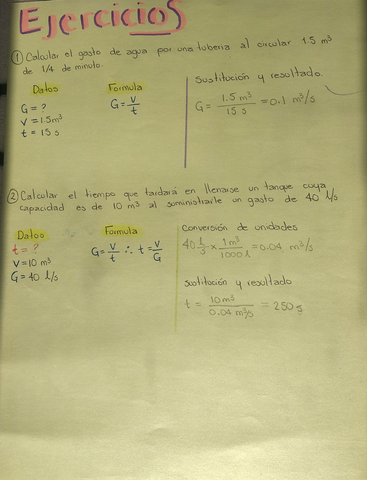 Ejercicios
① Calcular el gasto de agua por una tuberia al circular 1.5 m³
de 1/4 de minuto.
Datos
G = ?
V = 1.5m³
t = 15 s
Formula
G = V/t
Sustitución y resultado.
G = 1.5 m³ / 15 s = 0.1 m³/s
② Calcular el tiempo que tardará en llenarse un tanque cuya
capacidad es de 10 m³ al suministrarle un gasto de 40 l/s
Datos
t = ?
V = 10 m³
G = 40 l/s
Formula
G = V/t ∴ t = V/G
Conversión de unidades
40 l/s x 1m³/1000 l = 0.04 m³/s
Sustitución y resultado
t = 10m³ / 0.04 m³/s = 250 s